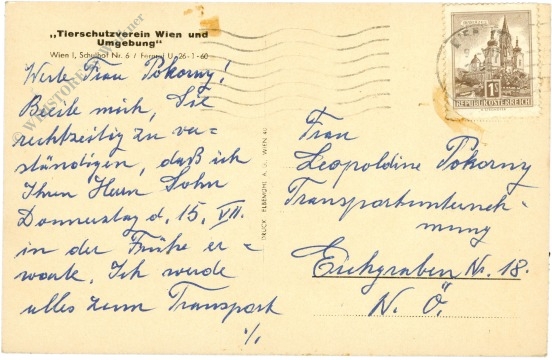 „Tierschutzverein Wien und
Umgebung"
Wien I, Schulhof Nr. 6 / Fernruf U-26-1-60
Werte Frau Pokorny!
Beeile mich, Sie
rechtzeitig zu ver=
ständigen, daß ich
Ihren Herrn Sohn
Donnerstag d. 15. VII.
in der Frühe er=
warte. Ich werde
alles zum Transport
·/.
DRUCK ELBEMÜHL A. G. WIEN
REPUBLIK ÖSTERREICH
1S
Frau
Leopoldine Pokorny
Transportunterneh=
mung
Eichgraben Nr. 18.
N. Ö.